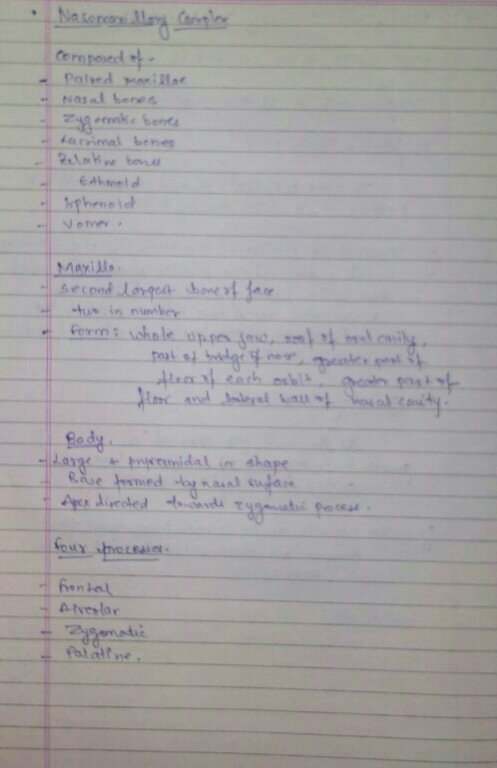 • Nasomaxillary Complex
Composed of -
- Paired maxillae
- Nasal bones
- Zygomatic bones
- Lacrimal bones
- Palatine bones
- Ethmoid
- Sphenoid
- Vomer.
Maxilla.
- Second largest bone of face
- two in number
- Form: whole upper jaw, roof of oral cavity,
part of bridge of nose, greater part of
floor of each orbit, greater part of
floor and lateral wall of nasal cavity.
Body.
- Large & pyramidal in shape
- Base formed by nasal surface
- Apex directed towards zygomatic process.
Four processes.
- Frontal
- Alveolar
- Zygomatic
- Palatine.